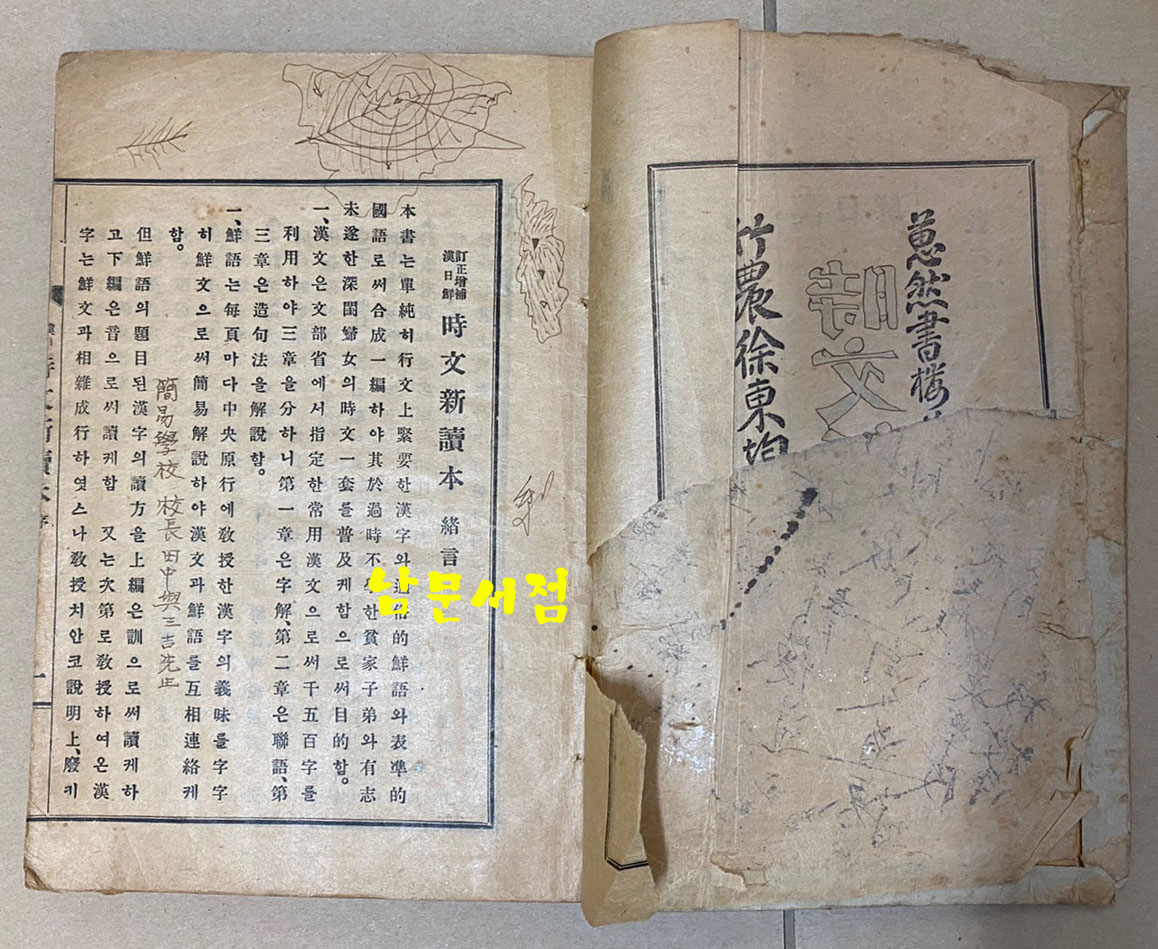 葱然書樓
竹農徐東均
訂正增補
漢日鮮
時文新讀本 緖言
本書는單純히行文上緊要한漢字와通俗的鮮語와表準的
國語로써合成一編하야其於過時不學한貧家子弟와有志
未遂한深閨歸女의時文一套를普及케함으로써目的함。
一、漢文은文部省에서指定한常用漢文으로써千五百字를
利用하야三章을分하니第一章은字解、第二章은聯語、第
三章은造句法을解說함。
一、鮮語는每頁마다中央原行에敎授한漢字의義味를字字
히鮮文으로써簡易解說하야漢文과鮮語를互相連絡케
함。
簡易學校 校長 田中與三吉先生
但鮮語의題目된漢字의讀方을上編은訓으로써讀케하
고下編은音으로써讀케함 又는次第로敎授하여온漢
字는鮮文과相雜成行하엿스나敎授치안코說明上、廢키
一
남문서점